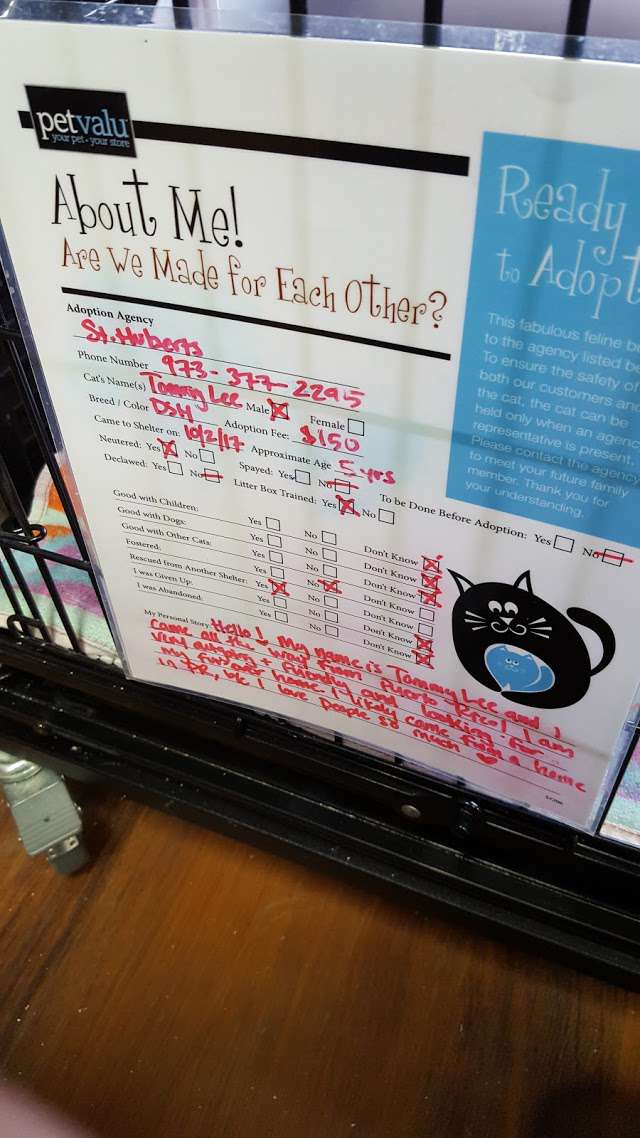 petvalu
your pet · your store
About Me!
Are We Made for Each Other?
Adoption Agency
St. Huberts
Phone Number 973-377-2295
Cat's Name(s) Tommy Lee Male Female
Breed / Color DSH Adoption Fee: $150
Came to Shelter on: 10/2/17 Approximate Age 5 yrs
Neutered: Yes No Spayed: Yes No To be Done Before Adoption: Yes No
Declawed: Yes No Litter Box Trained: Yes No
Good with Children: Yes No Don't Know
Good with Dogs: Yes No Don't Know
Good with Other Cats: Yes No Don't Know
Fostered: Yes No Don't Know
Rescued from Another Shelter: Yes No Don't Know
I was Given Up: Yes No Don't Know
I was Abandoned: Yes No Don't Know
My Personal Story Hello! My name is Tommy Lee and I
came all the way from Puerto Rico! I am
very outgoing + friendly and looking for
my furever home. I likely came from a home
in PR, b/c I love people so much
Ready
to Adopt
This fabulous feline
to the agency listed
To ensure the safety of
both our customers and
the cat, the cat can be
held only when an agency
representative is present.
Please contact the agency
to meet your future family
member. Thank you for
your understanding.